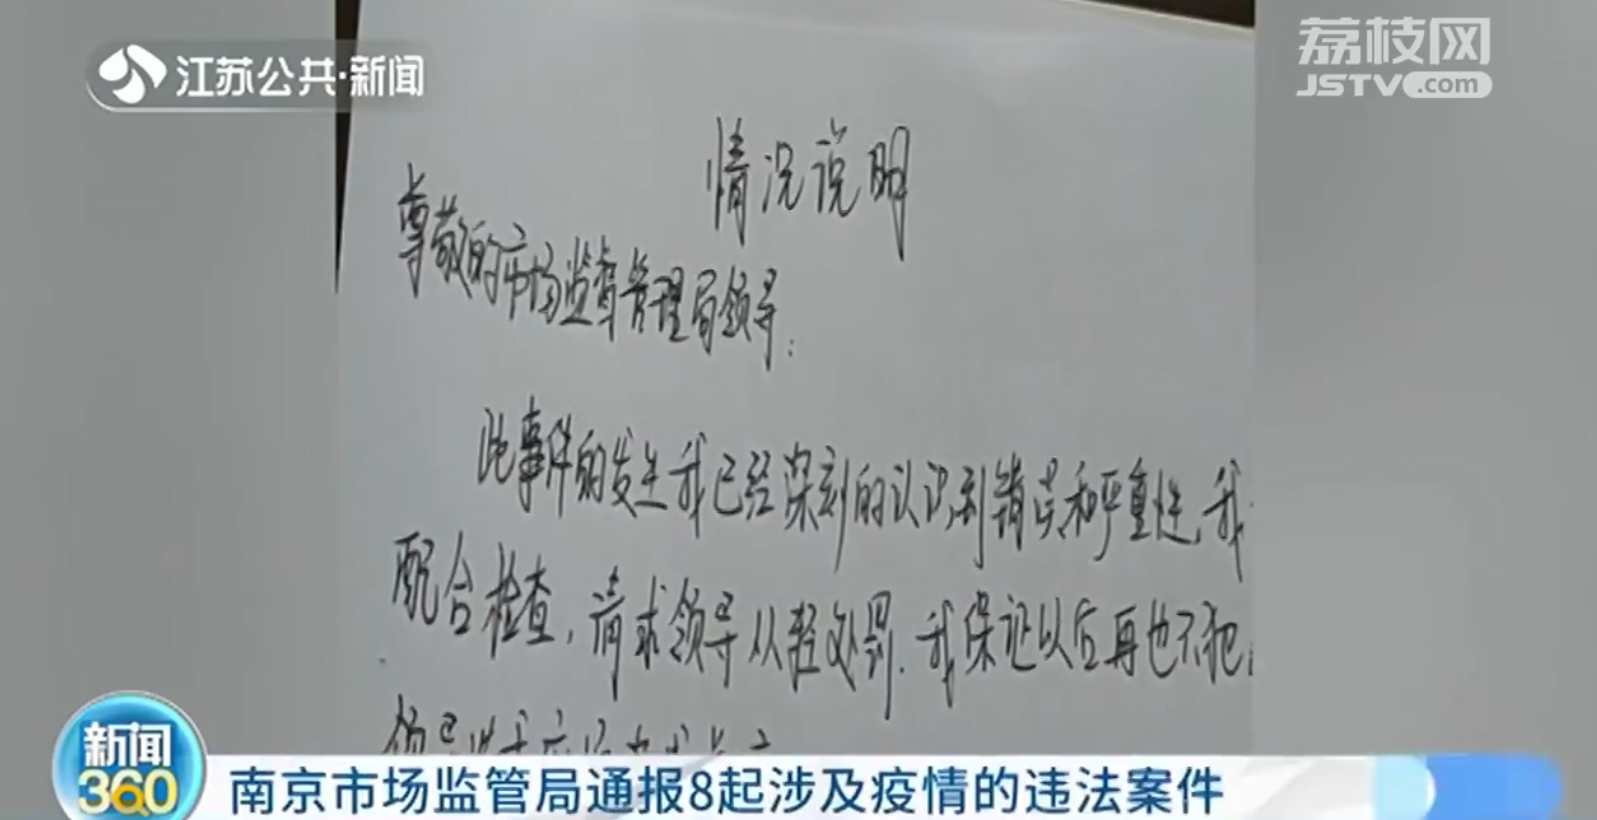 江苏公共·新闻
荔枝网
JSTV.com
情况说明
尊敬的市场监督管理局领导：
此事件的发生我已经深刻的认识到错误和严重性，我
配合检查，请求领导从轻处罚．我保证以后再也不犯
领导
新闻
360
南京市场监管局通报8起涉及疫情的违法案件